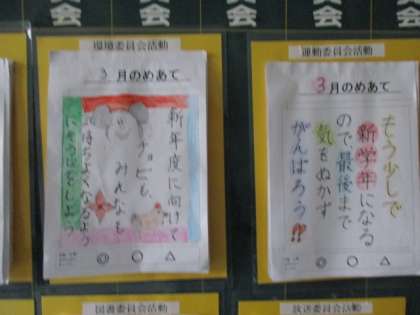 環境委員会活動
3月のめあて
新年度に向けて
チョビも、
みんなも
気持ちよくなるよう
にそうじをしよう
◎ ○ △
運動委員会活動
3月のめあて
もう少しで
新学年になる
ので最後まで
気をぬかず
がんばろう!!
◎ ○ △
図書委員会活動
放送委員会活動